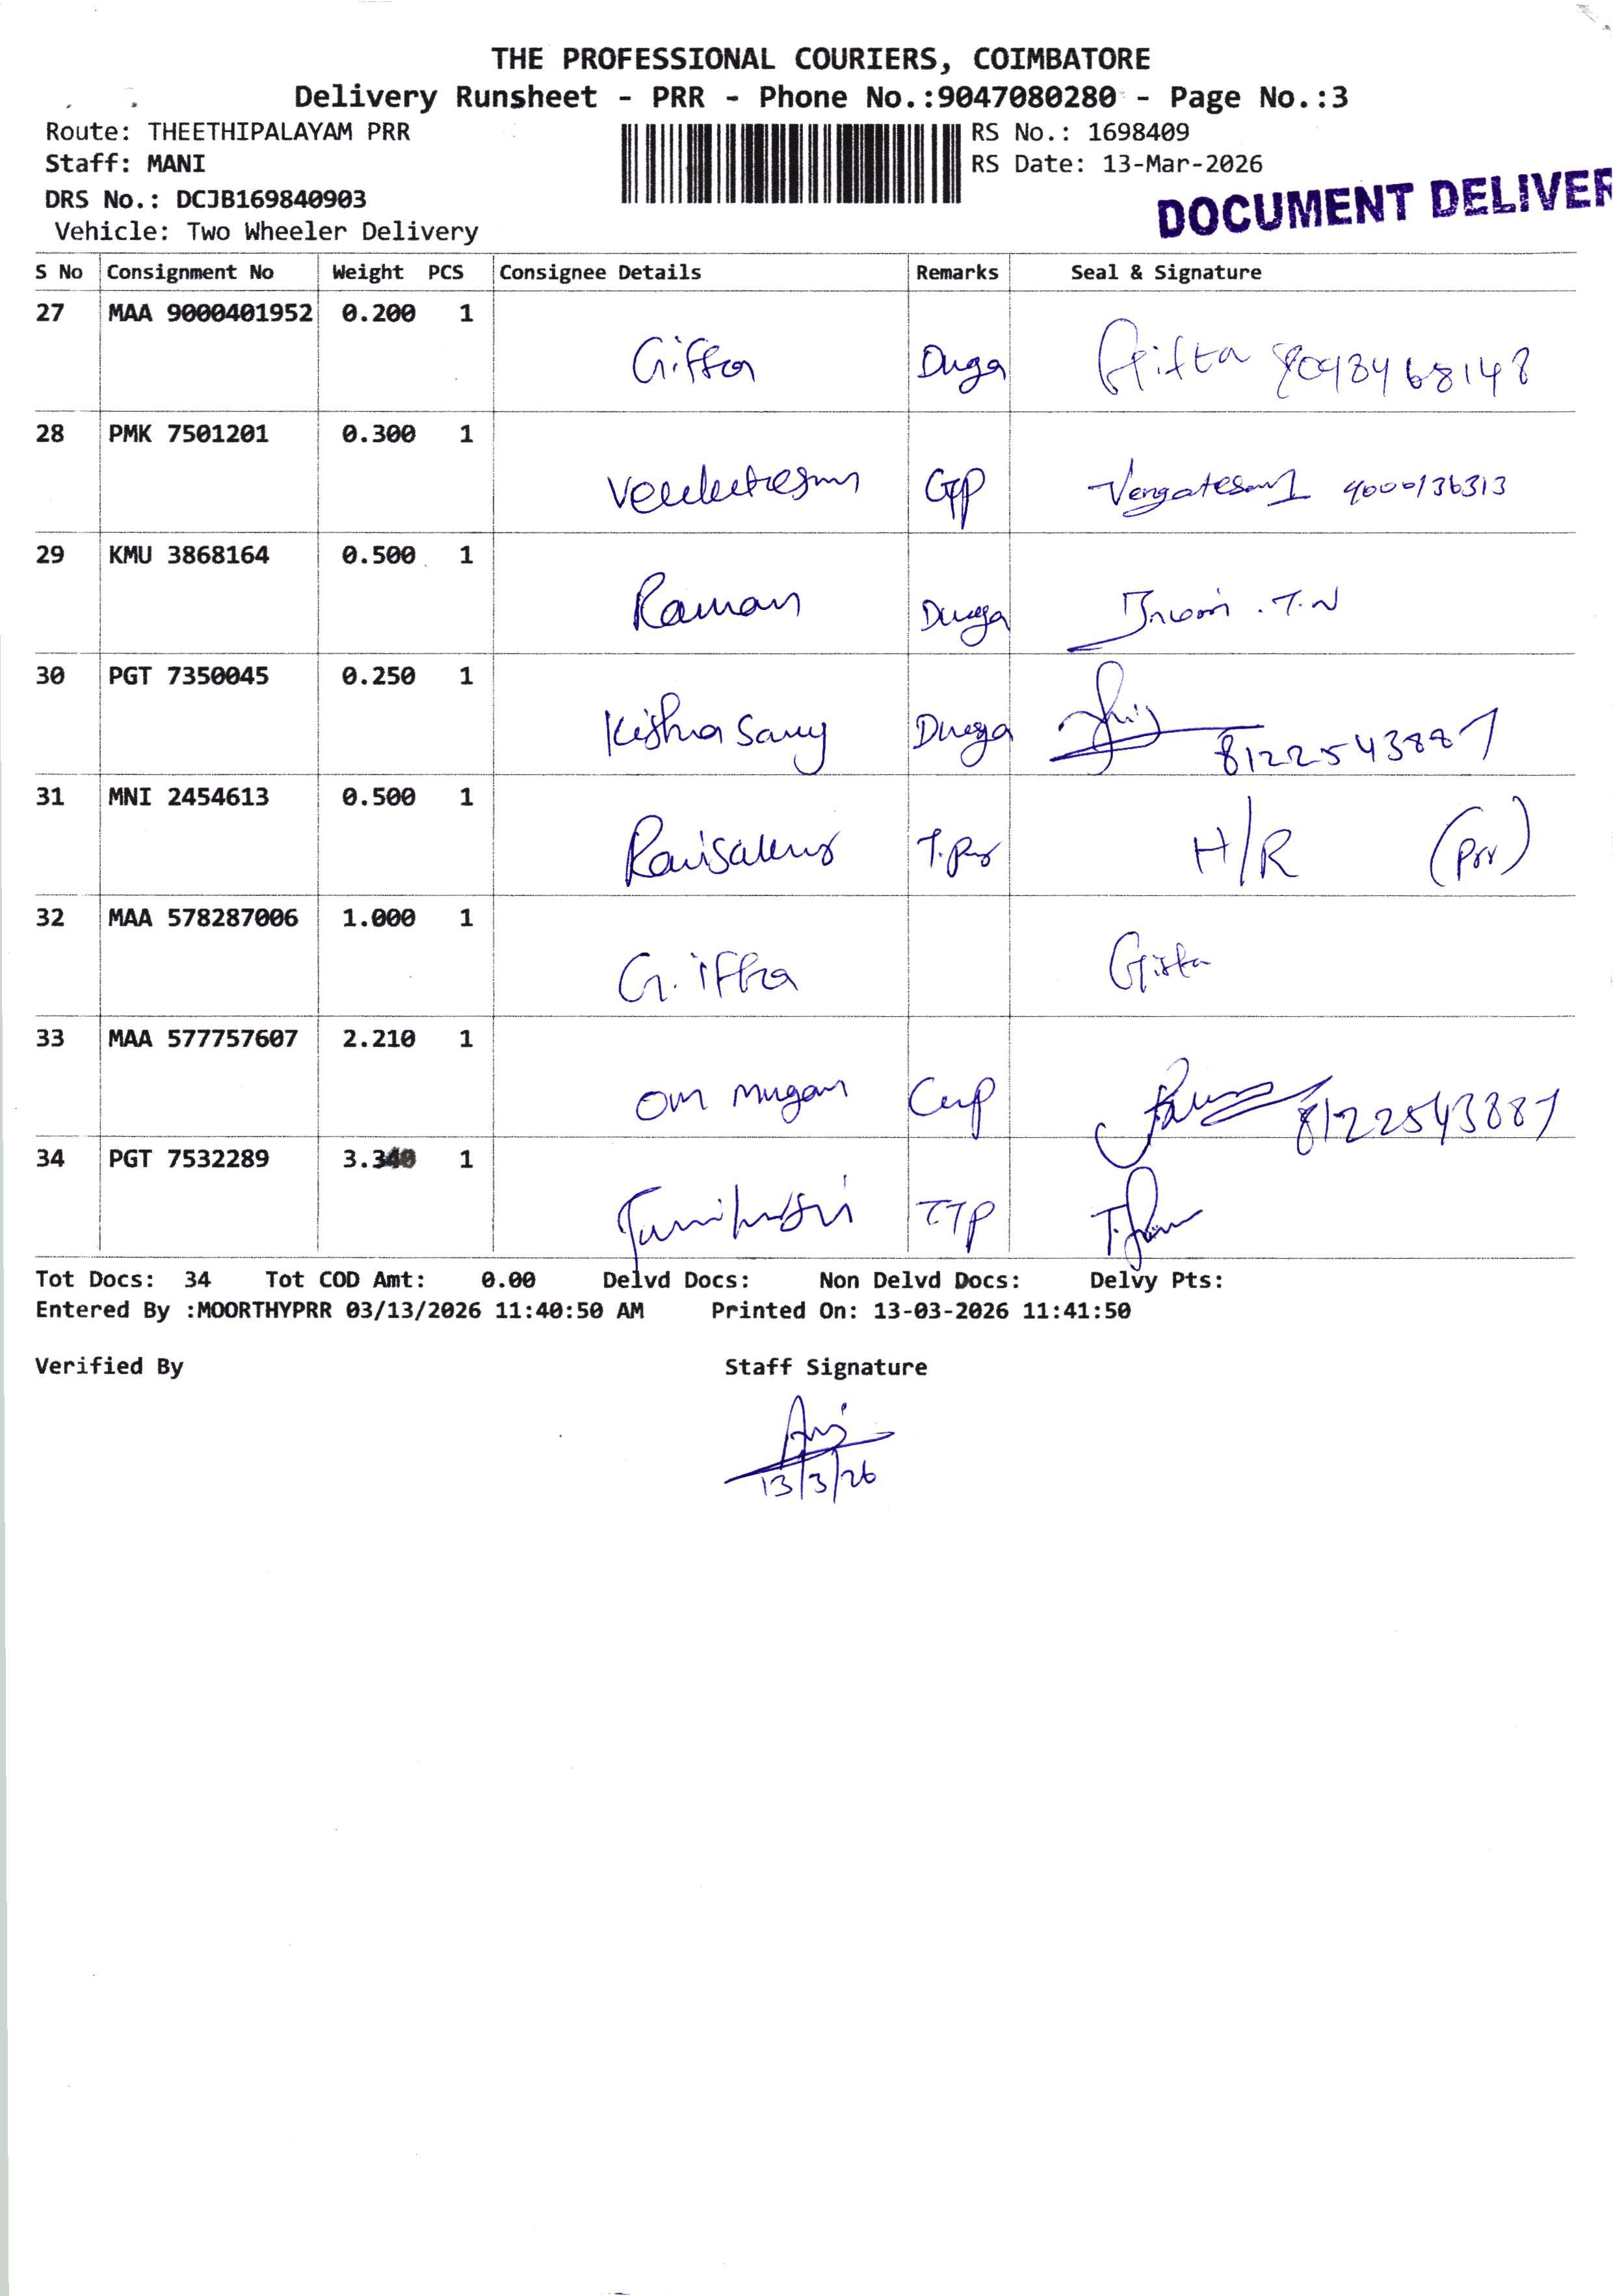 THE PROFESSIONAL COURIERS, COIMBATORE
Delivery Runsheet - PRR - Phone No.:9047080280 - Page No.:3
Route: THEETHIPALAYAM PRR RS No.: 1698409
Staff: MANI RS Date: 13-Mar-2026
DRS No.: DCJB169840903
DOCUMENT DELIVER
Vehicle: Two Wheeler Delivery
S No Consignment No Weight PCS Consignee Details Remarks Seal & Signature
27 MAA 9000401952 0.200 1
Giffta Duga Gifta
28 PMK 7501201 0.300 1
GP Vengatesan 9000136313
29 KMU 3868164 0.500 1
Raman Durga T.N
30 PGT 7350045 0.250 1
Kishna Samy Durga 8122543887
31 MNI 2454613 0.500 1
H/R (Prr)
32 MAA 578287006 1.000 1
G.iffta Gifta
33 MAA 577757607 2.210 1
Om mugan 8122543887
34 PGT 7532289 3.340 1
TTP
Tot Docs: 34 Tot COD Amt: 0.00 Delvd Docs: Non Delvd Docs: Delvy Pts:
Entered By :MOORTHYPRR 03/13/2026 11:40:50 AM Printed On: 13-03-2026 11:41:50
Verified By Staff Signature
13/3/26